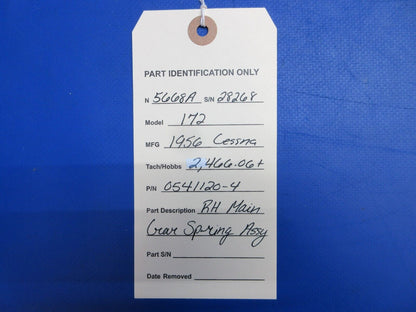 PART IDENTIFICATION ONLY
N 5668A S/N 28268
Model 172
MFG 1956 Cessna
Tach/Hobbs 2,466.06+
P/N 0541120-4
Part Description RH Main
Gear Spring Assy
Part S/N
Date Removed